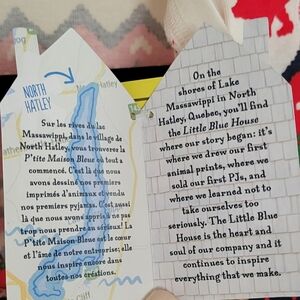 NORTH
HATLEY
Sur les rives du lac
Massawippi, dans le village de
North Hatley, vous trouverez la
P'tite Maison Bleue où tout a
commencé. C'est là que nous
avons dessiné nos premiers
imprimés d'animaux et vendu
nos premiers pyjamas. C'est aussi
là que nous avons appris à ne pas
trop nous prendre au sérieux! La
P'tite Maison Bleue est le cœur
et l'âme de notre entreprise; elle
nous inspire encore dans
toutes nos créations.
Cliff
On the
shores of Lake
Massawippi in North
Hatley, Quebec, you'll find
the Little Blue House
where our story began: it's
where we drew our first
animal prints, where we
sold our first PJs, and
where we learned not to
take ourselves too
seriously. The Little Blue
House is the heart and
soul of our company and it
continues to inspire
everything that we make.